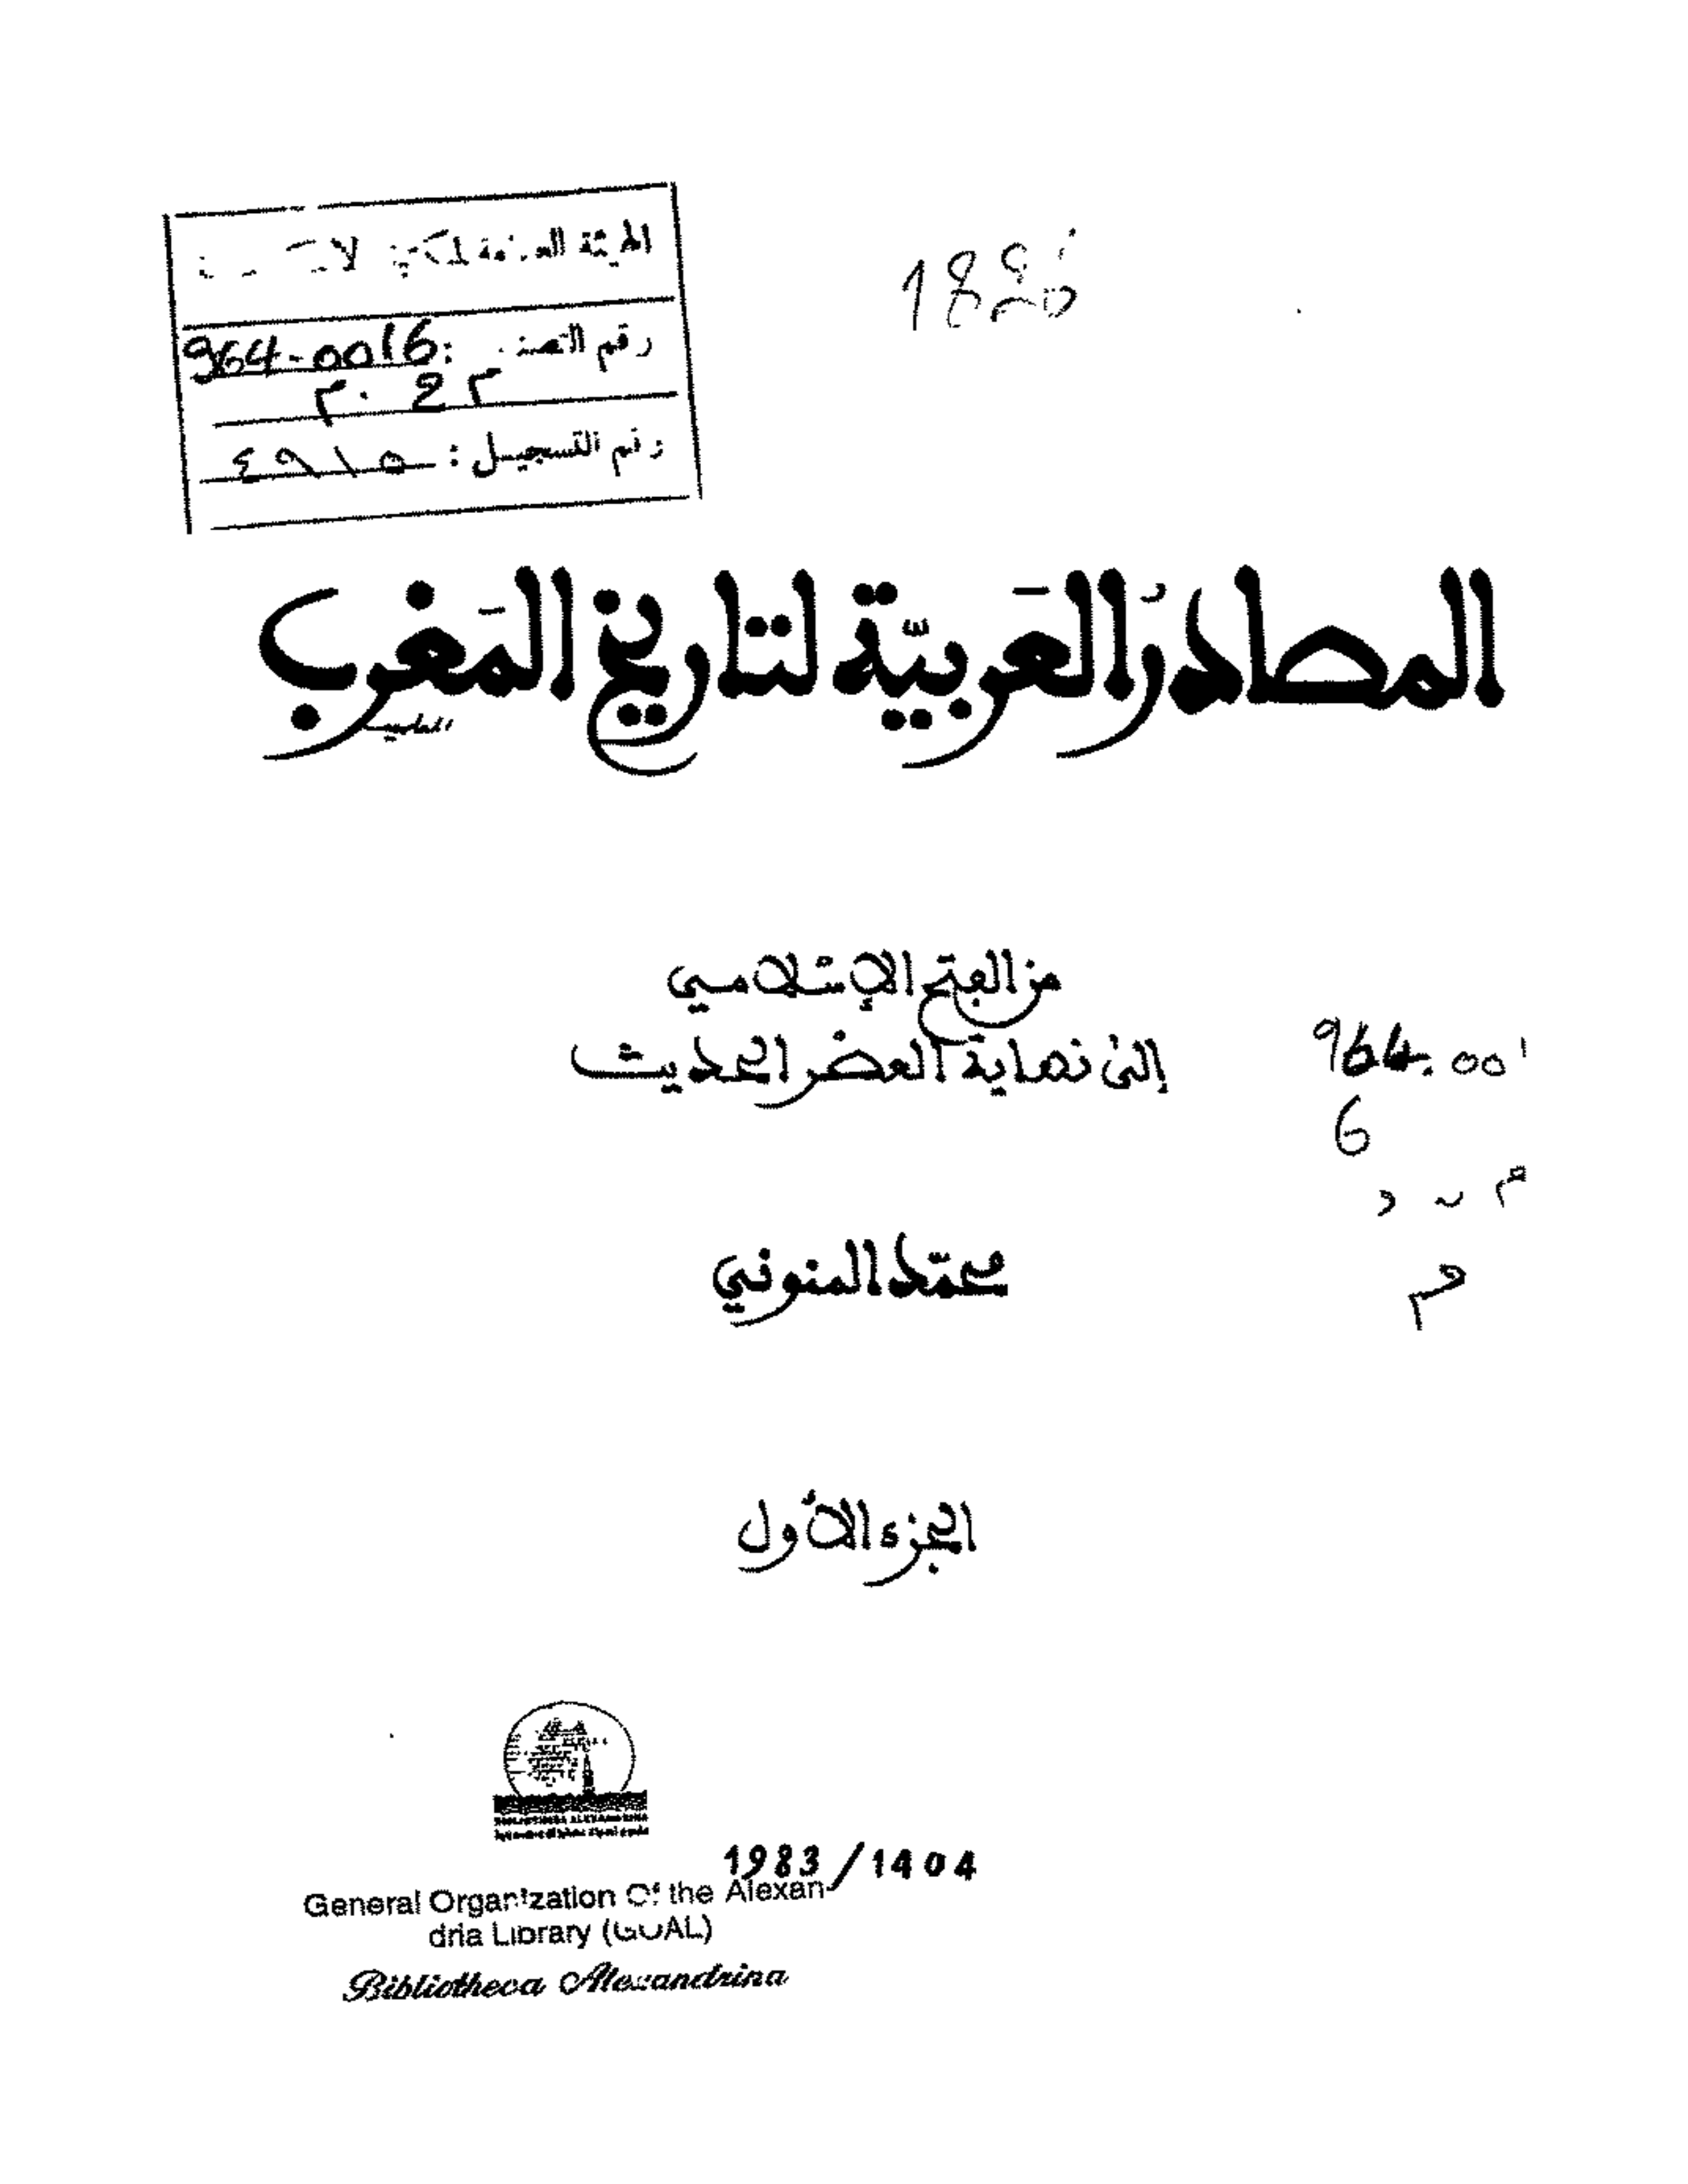 الهيئة العامة لمكتبة
رقم التصنيف : 964-0016
م . 2 م
رقم التسجيل : ٤٩١٥
المصادر العَربيّة لتاريخ المَغرب
من الفتح الإسلامي
إلى نهاية العصر الحديث
964.001
6
محمّد المنوني
م
الجزء الأول
BIBLIOTHECA ALEXANDRINA
1983/1404
General Organization Of the Alexan-
dria Library (GOAL)
Bibliotheca Alexandrina